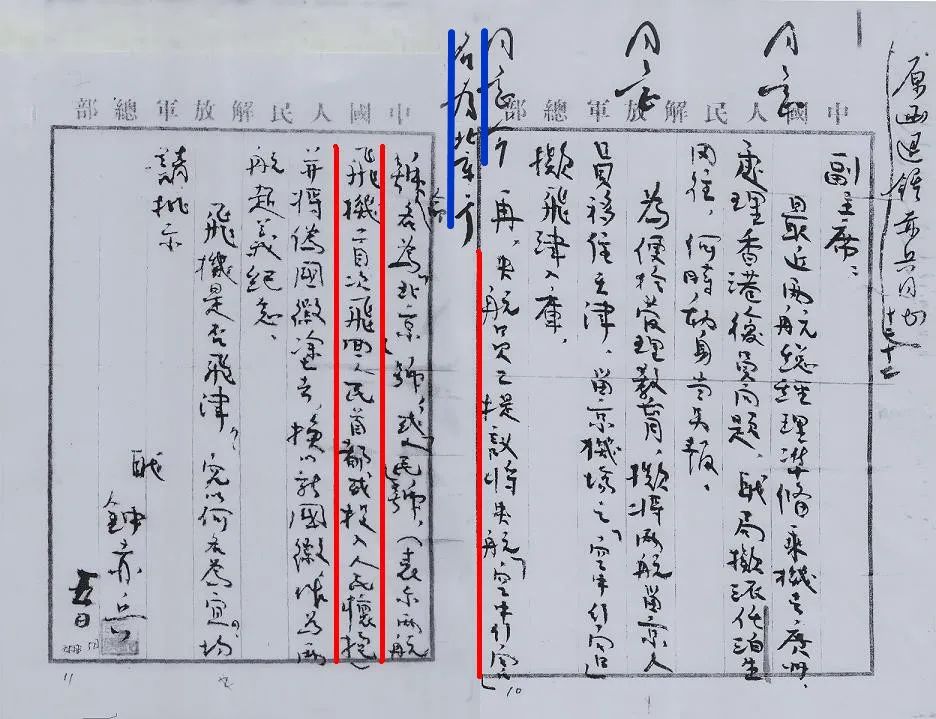 原函退鐘赤兵同志
同意
同意
同意
名為北京
中國人民解放軍總部
副主席：
最近兩航總經理準備乘機去廣州，
處理香港 員問題，職局擬派任泊生
同往，何時動身當 報。
為便於管理教育，擬將兩航留京人
員移住天津，留京機場之「空中行宮」
擬飛津入庫，
再，央航員工提議將央航「空中行宮」
中國人民解放軍總部
號名為「北京」號，或「人民號」，（表示兩航
飛機首次飛回人民首都或投入人民懷抱）
并將偽國徽塗去，換以新國徽作為兩
航起義紀念，
飛機是否飛津？究以何名為宜？均
請批示
職
鐘赤兵
五日
10
11